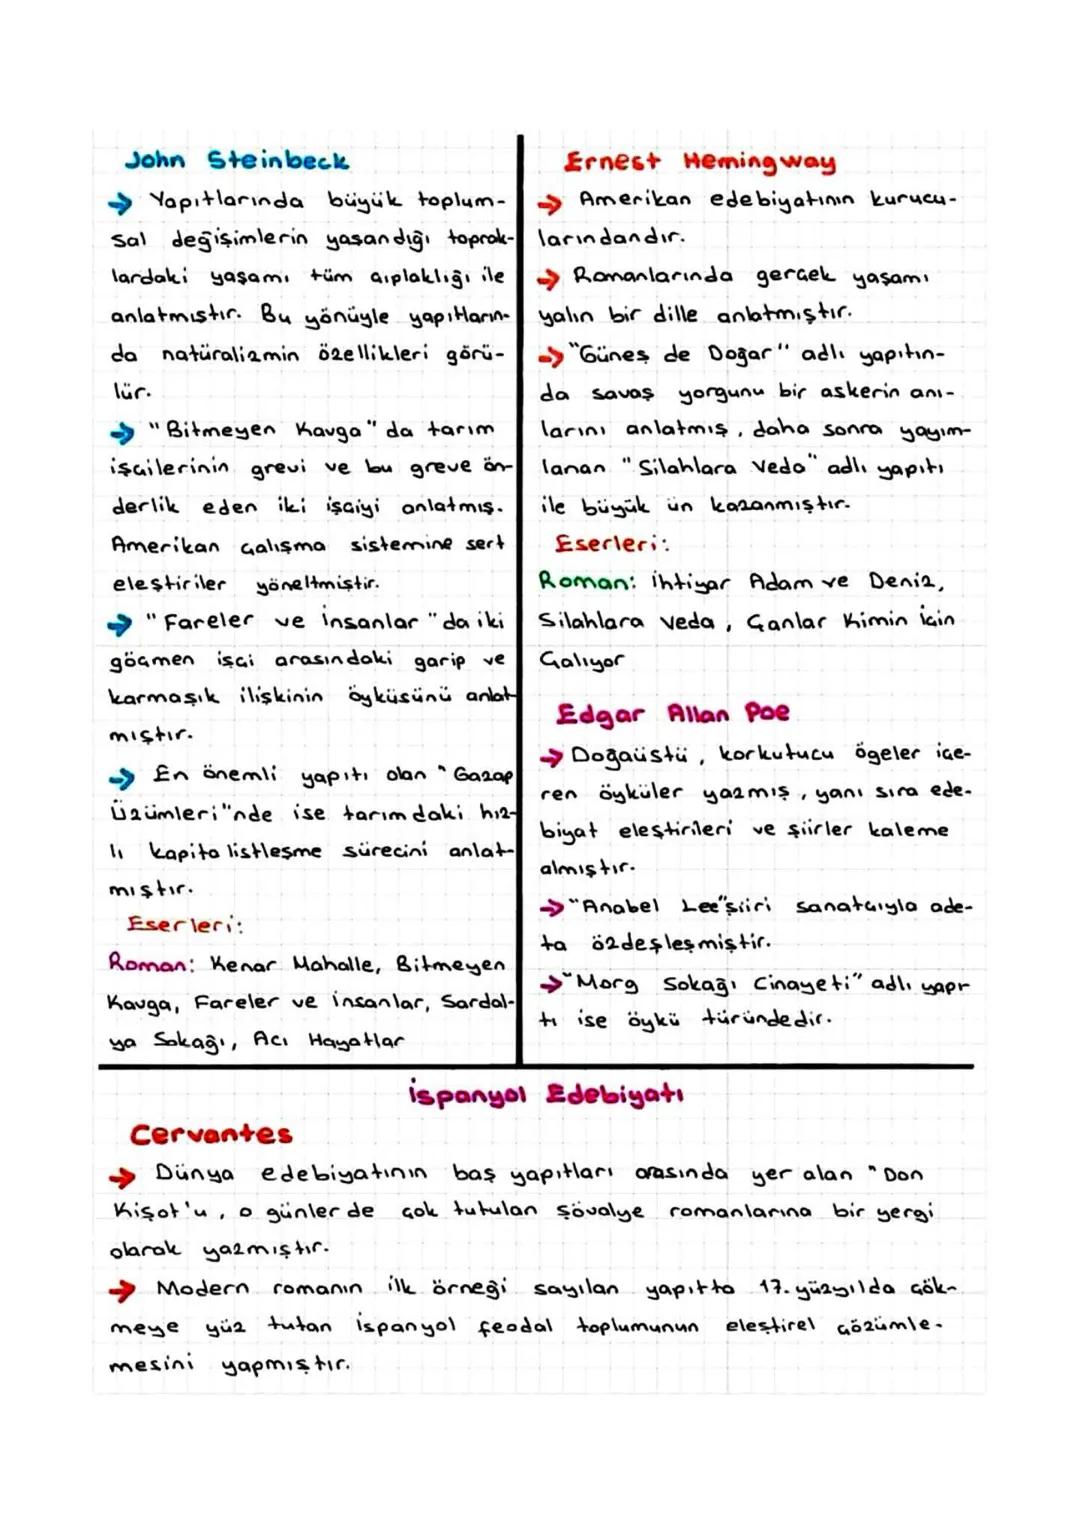 John Steinbeck
→ Yapıtlarında büyük toplum-
sal değişimlerin yaşandığı toprak-
lardaki yaşamı tüm çıplaklığı ile
anlatmıştır. Bu yönüyle yapıtların-
da natüralizmin özellikleri görü-
lür.
→ "Bitmeyen Kavga" da tarım
işçilerinin grevi ve bu greve ön-
derlik eden iki işçiyi anlatmış.
Amerikan çalışma sistemine sert
eleştiriler yöneltmiştir.
→ "Fareler ve İnsanlar "da iki
göçmen işçi arasındaki garip ve
karmaşık ilişkinin öyküsünü anlat
mıştır.
→ En önemli yapıtı olan "Gazap
Üzümleri"nde ise tarımdaki hız-
lı kapitalistleşme sürecini anlat-
mıştır.
Eserleri:
Roman: Kenar Mahalle, Bitmeyen
Kavga, Fareler ve İnsanlar, Sardal-
ya Sokağı, Acı Hayatlar
Ernest Hemingway
→ Amerikan edebiyatının kurucu-
larındandır.
→ Romanlarında gerçek yaşamı
yalın bir dille anlatmıştır.
→ "Güneş de Doğar" adlı yapıtın-
da savaş yorgunu bir askerin anı-
larını anlatmış, daha sonra yayım-
lanan "Silahlara Veda" adlı yapıtı
ile büyük ün kazanmıştır.
Eserleri:
Roman: İhtiyar Adam ve Deniz,
Silahlara Veda, Çanlar Kimin İçin
Çalıyor
Edgar Allan Poe
→ Doğaüstü, korkutucu ögeler içe-
ren öyküler yazmış, yanı sıra ede-
biyat eleştirileri ve şiirler kaleme
almıştır.
→ "Anabel Lee"şiiri sanatçıyla ade-
ta özdeşleşmiştir.
→ "Morg Sokağı Cinayeti" adlı yapı
tı ise öykü türündedir.
İspanyol Edebiyatı
Cervantes
→ Dünya edebiyatının baş yapıtları arasında yer alan "Don
Kişot'u, o günlerde çok tutulan şövalye romanlarına bir yergi
olarak yazmıştır.
→ Modern romanın ilk örneği sayılan yapıtta 17. yüzyılda çök-
meye yüz tutan İspanyol feodal toplumunun eleştirel çözümle-
mesini yapmıştır.